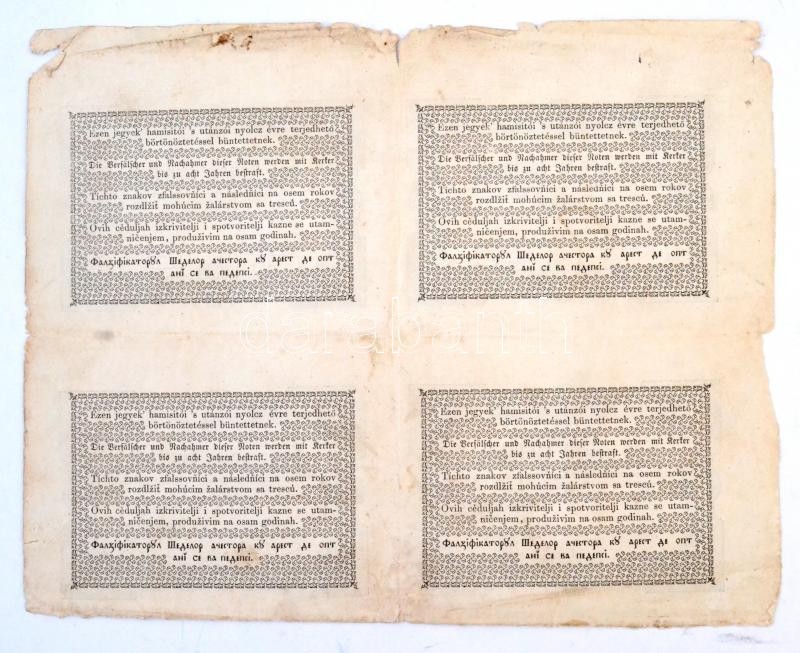 Ezen jegyek' hamisitói 's utánzói nyolcz évre terjedhető
börtönöztetéssel büntettetnek.
Die Verfälscher und Nachahmer dieser Noten werden mit Kerker
bis zu acht Jahren bestraft.
Tichto znakov zfalssovňíci a následníci na osem rokov
rozdlžiť mohúcim žalárstvom sa trescú.
Ovih céduljah izkrivitelji i spotvoritelji kazne se utam-
ničenjem, produživim na osam godinah.
Фалхіфікаторꙋл Шеделор ачестора кꙋ арест де опт
анї се ва педепсі.
Ezen jegyek' hamisitói 's utánzói nyolcz évre terjedhető
börtönöztetéssel büntettetnek.
Die Verfälscher und Nachahmer dieser Noten werden mit Kerker
bis zu acht Jahren bestraft.
Tichto znakov zfalssovňíci a následníci na osem rokov
rozdlžiť mohúcim žalárstvom sa trescú.
Ovih céduljah izkrivitelji i spotvoritelji kazne se utam-
ničenjem, produživim na osam godinah.
Фалхіфікаторꙋл Шеделор ачестора кꙋ арест де опт
анї се ва педепсі.
darabanth
Ezen jegyek' hamisitói 's utánzói nyolcz évre terjedhető
börtönöztetéssel büntettetnek.
Die Verfälscher und Nachahmer dieser Noten werden mit Kerker
bis zu acht Jahren bestraft.
Tichto znakov zfalssovňíci a následníci na osem rokov
rozdlžiť mohúcim žalárstvom sa trescú.
Ovih céduljah izkrivitelji i spotvoritelji kazne se utam-
ničenjem, produživim na osam godinah.
Фалхіфікаторꙋл Шеделор ачестора кꙋ арест де опт
анї се ва педепсі.
Ezen jegyek' hamisitói 's utánzói nyolcz évre terjedhető
börtönöztetéssel büntettetnek.
Die Verfälscher und Nachahmer dieser Noten werden mit Kerker
bis zu acht Jahren bestraft.
Tichto znakov zfalssovňíci a následníci na osem rokov
rozdlžiť mohúcim žalárstvom sa trescú.
Ovih céduljah izkrivitelji i spotvoritelji kazne se utam-
ničenjem, produživim na osam godinah.
Фалхіфікаторꙋл Шеделор ачестора кꙋ арест де опт
анї се ва педепсі.